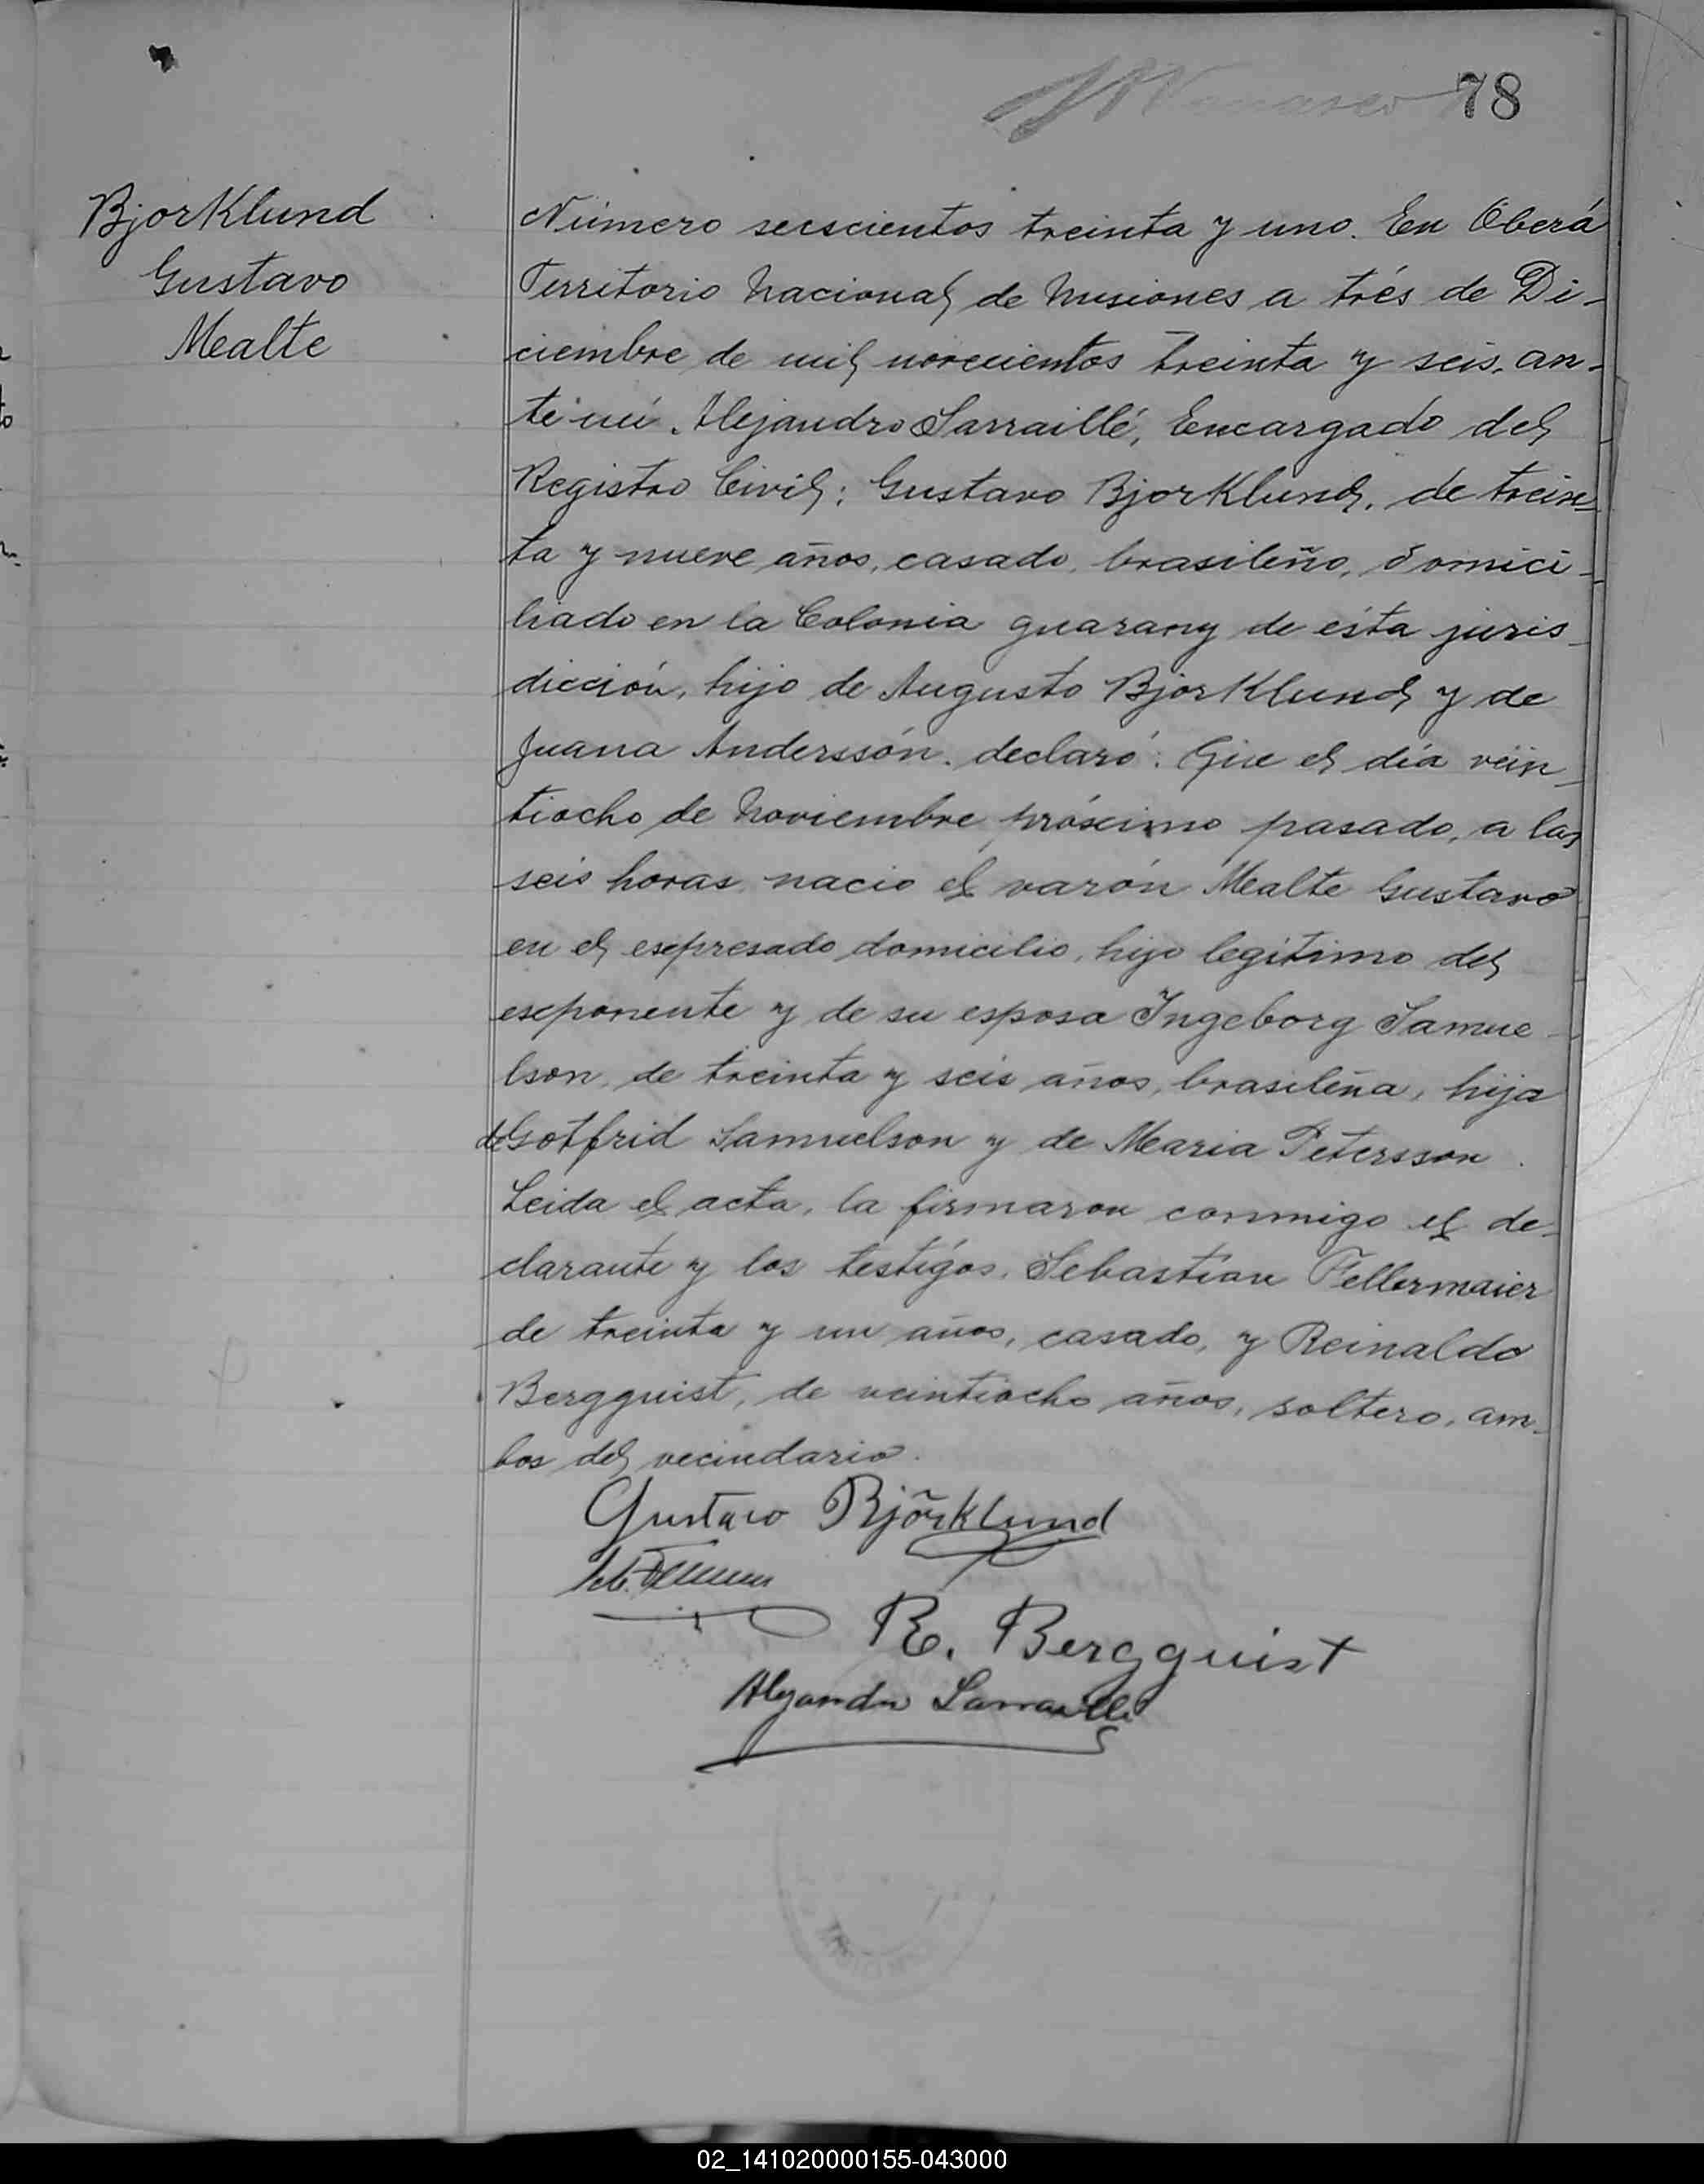 78
Bjorklund
Gustavo
Mealte
Número seiscientos treinta y uno. En Oberá
Territorio Nacional de Misiones a trés de Di-
ciembre de mil novecientos treinta y seis, an-
te mí. Alejandro Sarraillé, Encargado del
Registro Civil; Gustavo Bjorklund, de trein-
ta y nueve años, casado, brasileño, domici-
liado en la Colonia guarany de ésta juris-
dicción, hijo de Augusto Bjorklund y de
Juana Anderssón. declaró: Que el día vein-
tiocho de Noviembre próximo pasado, a las
seis horas nacio el varón Mealte Gustavo
en el expresado domicilio, hijo legítimo del
exponente y de su esposa Ingeborg Samue-
lson, de treinta y seis años, brasileña, hija
de Gotfrid Samuelson y de Maria Petersson.
Leida el acta, la firmaron conmigo el de-
clarante y los testigos, Sebastian Fellermaier
de treinta y un años, casado, y Reinaldo
Bergquist, de veintiocho años, soltero, am-
bos del vecindario.
Gustavo Björklund
R. Bergquist
Alejandro Sarraillé
02_141020000155-043000